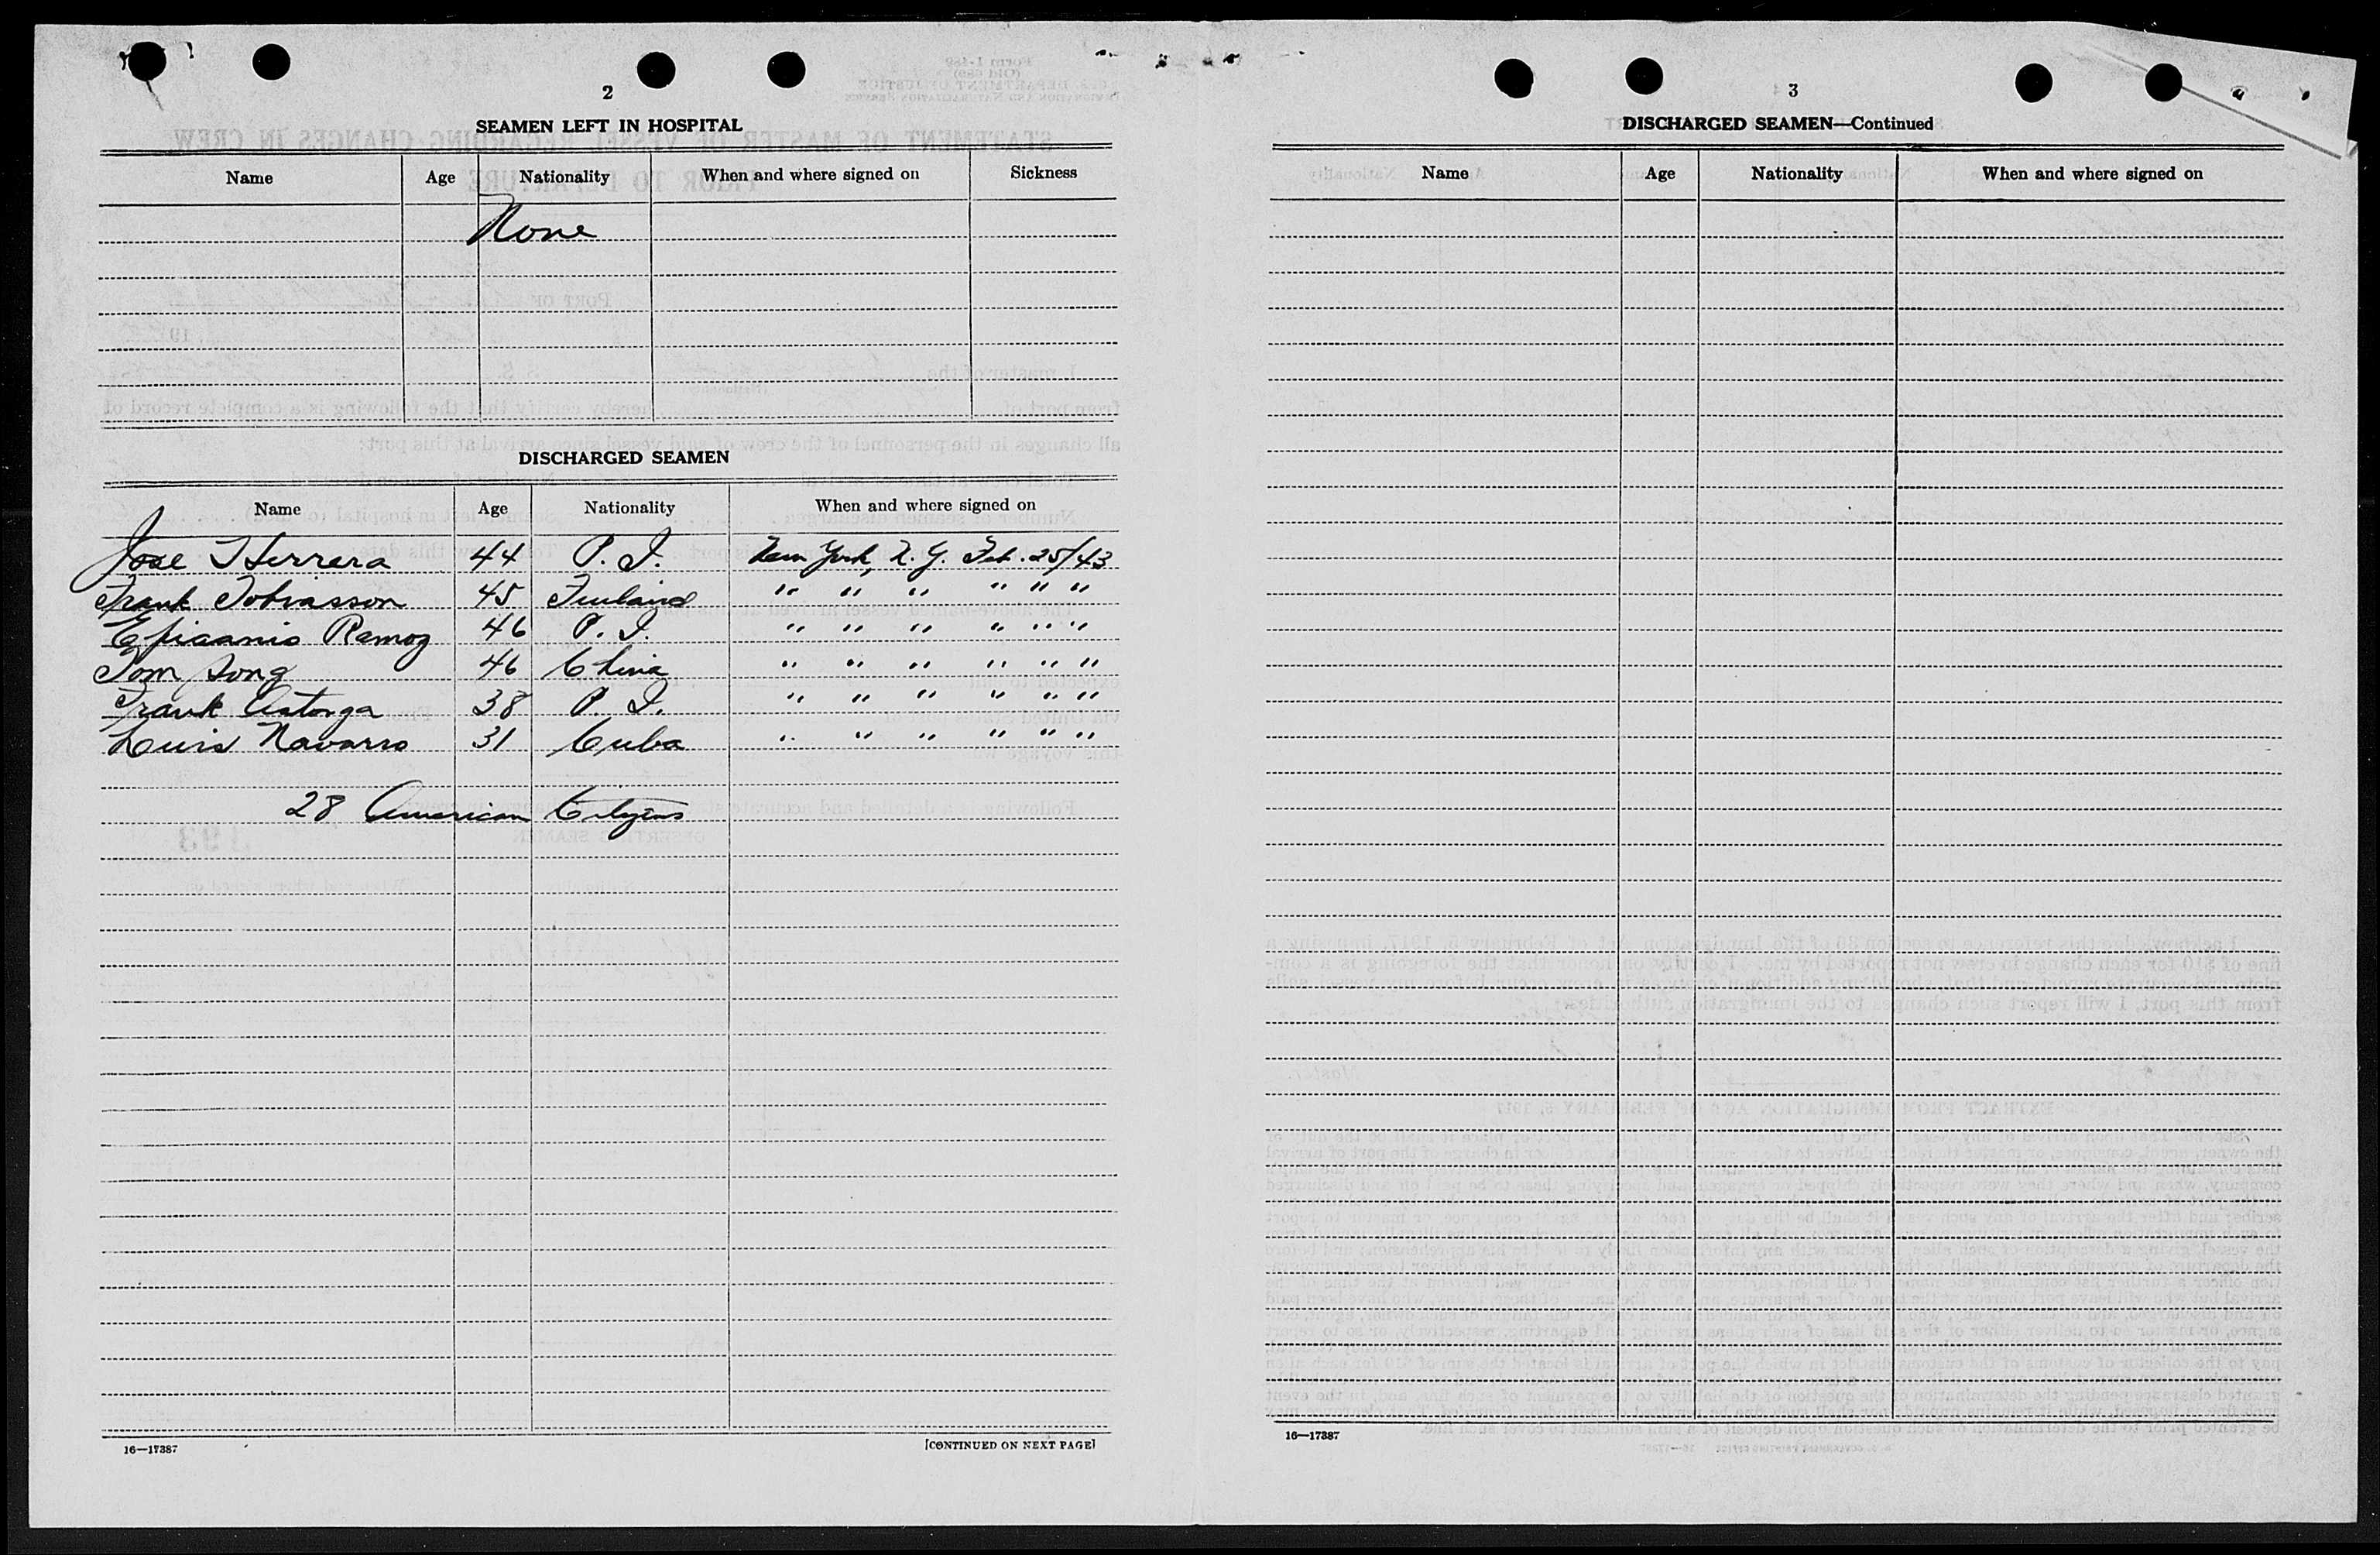 2
SEAMEN LEFT IN HOSPITAL
Name Age Nationality When and where signed on Sickness
None
DISCHARGED SEAMEN
Name Age Nationality When and where signed on
Jose Herrera 44 P. I. New York, N. Y. Feb. 25/43
Frank Tobiasson 45 Finland " " " " " "
Epiaanio Ramoz 46 P. I. " " " " " "
Tom Song 46 China " " " " " "
Frank Astorga 38 P. I. " " " " " "
Luis Navarro 31 Cuba " " " " " "
28 American Citizens
16—17387 [CONTINUED ON NEXT PAGE]
3
DISCHARGED SEAMEN—Continued
Name Age Nationality When and where signed on
16—17387